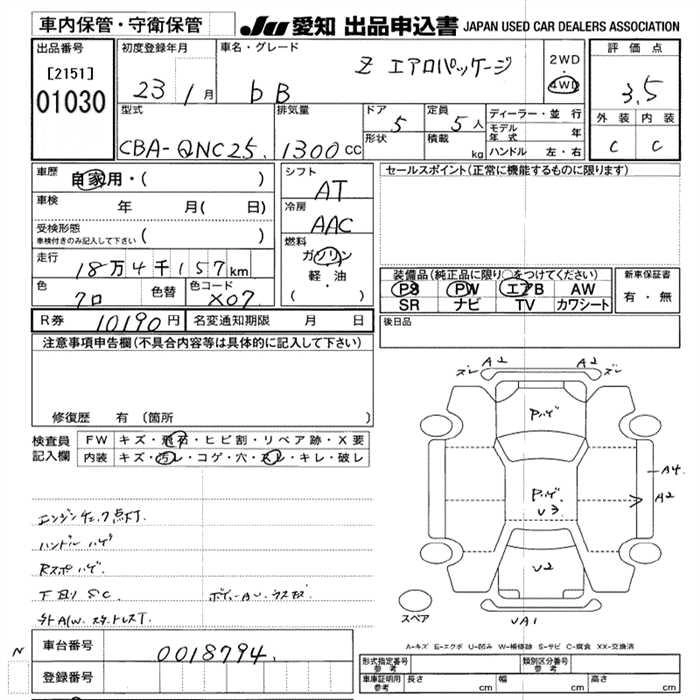 車内保管・守衛保管
JU 愛知 出品申込書 JAPAN USED CAR DEALERS ASSOCIATION
出品番号
[2151]
01030
初度登録年月
23 1月
車名・グレード
bB Z エアロパッケージ
2WD
・
4WD
評価点
3.5
外装 内装
C C
型式
CBA-QNC25
排気量
1300cc
ドア 5
形状
定員 5人
積載 kg
ディーラー・並行
モデル年式 年
ハンドル 左・右
車歴
自家用・( )
車検 年 月( 日)
受検形態
車検付きのみ記入して下さい ( )
走行 18万4千157km
色 クロ 色替 色コード X07
シフト
AT
冷房
AAC
燃料
ガソリン
軽・油
( )
セールスポイント(正常に機能するものに限ります)
装備品(純正品に限り○をつけてください)
PS PW エアB AW
SR ナビ TV カワシート
新車保証書
有・無
後日品
R券 10190円 名変通知期限 月 日
注意事項申告欄(不具合内容等は具体的に記入して下さい)
修復歴 有 (箇所 )
検査員記入欄
FW キズ・飛石・ヒビ割・リペア跡・X要
内装 キズ・汚レ・コゲ・穴・スレ・キレ・破レ
エンジンチェック点灯.
ハンドルハゲ
Rスポハゲ.
下回りSC
外AW.スタッドレスT.
A2 A2
ズレ ズレ
Pハゲ
Pハゲ.
U3
U2
A4
A2
UA1
スペア
A-キズ E-エクボ U-凹み W-補修跡 S-サビ C-腐食 XX-交換済
N
車台番号 0018794.
登録番号
形式指定番号
参考
類別区分番号
参考
車庫証明用
参考
長さ cm 幅 cm 高さ cm